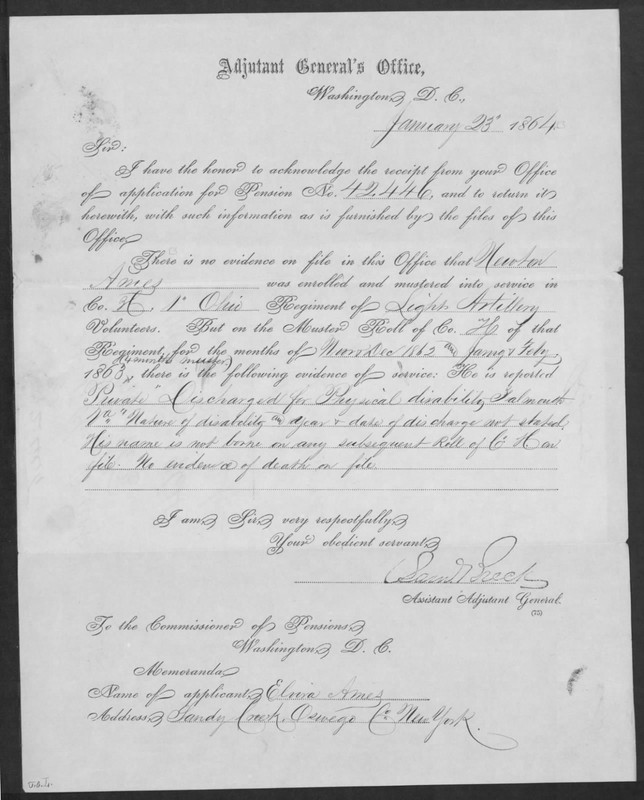 Adjutant General's Office,
Washington, D. C.,
January 23d 1864
Sir:
I have the honor to acknowledge the receipt from your Office
of application for Pension No. 42,446, and to return it
herewith, with such information as is furnished by the files of this
Office.
There is no evidence on file in this Office that Newton
Ames was enrolled and mustered into service in
Co. H, 1st Ohio Regiment of Light Artillery
Volunteers. But on the Muster Roll of Co. H of that
Regiment, for the months of Nov & Dec 1862 and Jany & Feby
1863, there is the following evidence of service: He is reported
Private "Discharged for Physical disability Falmouth
Va." Nature of disability and year & date of discharge not stated
His name is not borne on any subsequent Roll of Co H on
file. No evidence of death on file.
I am, Sir, very respectfully,
Your obedient servant,
Saml Breck
Assistant Adjutant General.
(35)
To the Commissioner of Pensions,
Washington, D. C.
Memoranda.
Name of applicant, Elvira Ames
Address, Sandy Creek, Oswego Co. New York.